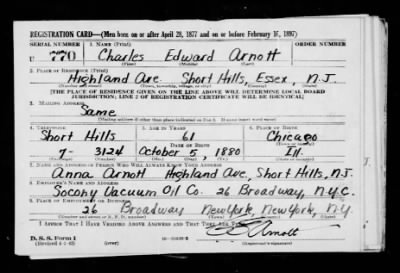 REGISTRATION CARD—(Men born on or after April 28, 1877 and on or before February 16, 1897)
SERIAL NUMBER 1. Name (Print) ORDER NUMBER
U 770 Charles Edward Arnott
(First) (Middle) (Last)
2. Place of Residence (Print)
Highland Ave. Short Hills, Essex, N.J.
(Number and street) (Town, township, village, or city) (County) (State)
[THE PLACE OF RESIDENCE GIVEN ON THE LINE ABOVE WILL DETERMINE LOCAL BOARD
JURISDICTION; LINE 2 OF REGISTRATION CERTIFICATE WILL BE IDENTICAL]
3. Mailing Address
Same
[Mailing address if other than place indicated on line 2. If same insert word same]
4. Telephone 5. Age in Years 6. Place of Birth
Short Hills 61 Chicago
Date of Birth
7- 3124 October 5, 1880 Ill.
7. Name and Address of Person Who Will Always Know Your Address
Anna Arnott Highland Ave, Short Hills, N.J.
8. Employer's Name and Address
Socony Vacuum Oil Co. 26 Broadway, N.Y.C.
9. Place of Employment or Business
26 Broadway New York, New York, N.Y.
I Affirm That I Have Verified Above Answers and That They Are True.
D. S. S. Form 1
Arnott